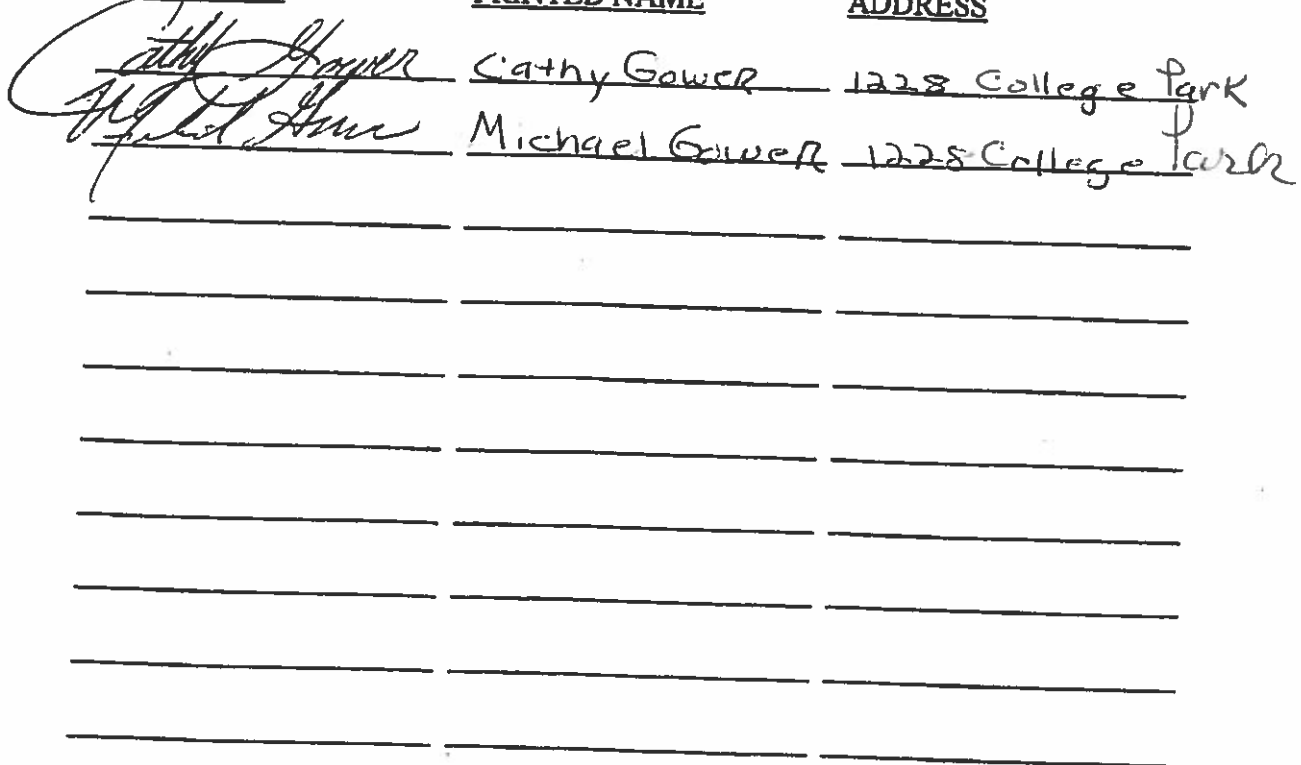 PRINTED NAME ADDRESS
Cathy Gower Cathy Gower 1228 College Park
Michael Gower 1228 College Park